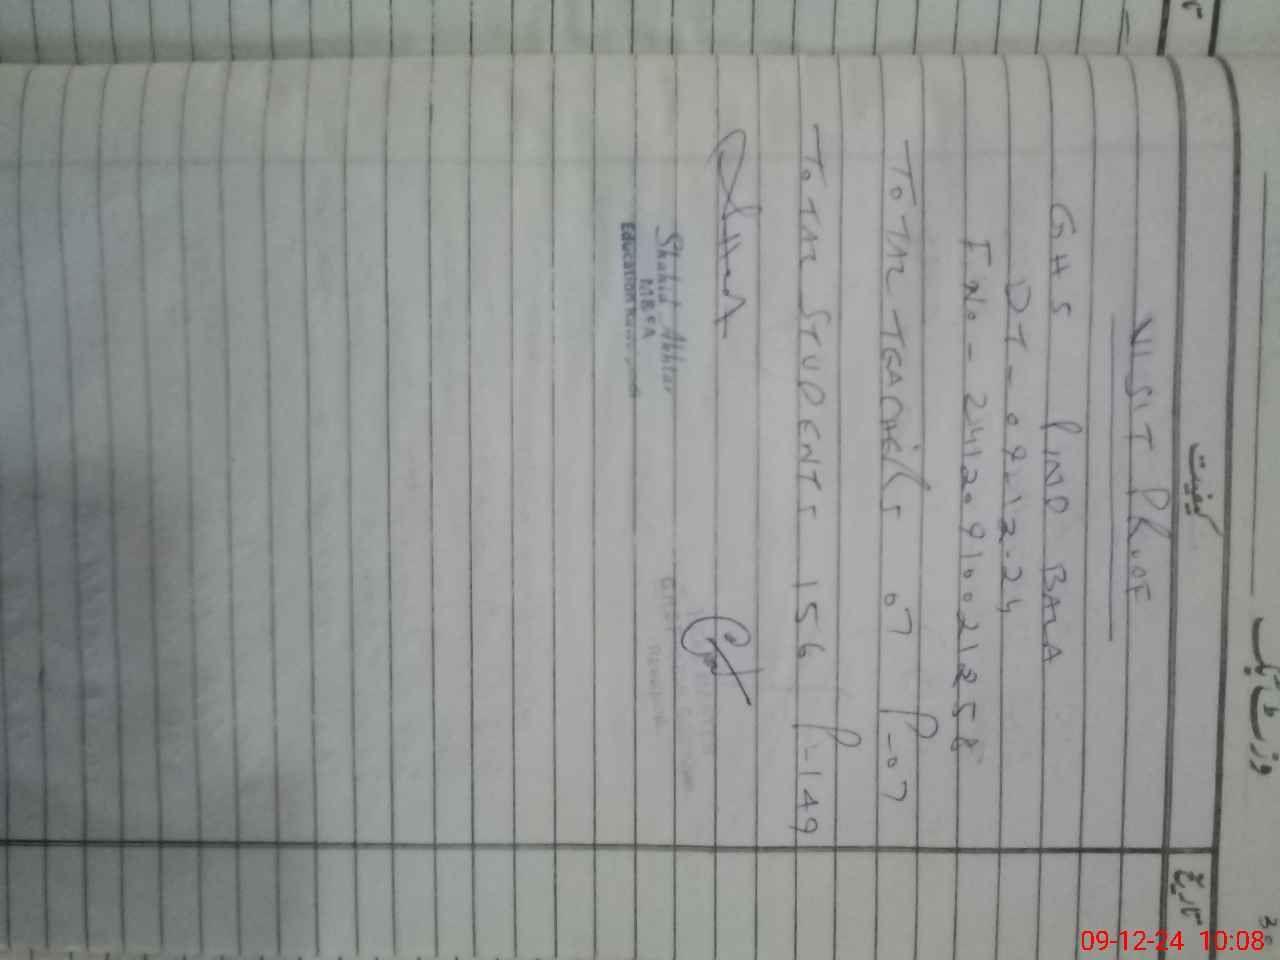 کیفیت
تاریخ
VISIT PROOF
GHS PIND BALA
DT - 09.12.24
F.No - 24120910021258
TOTAL TEACHERS 07 P-07
TOTAL STUDENTS 156 P-149
Shahid Akhtar
MB&A
Education
09-12-24 10:08